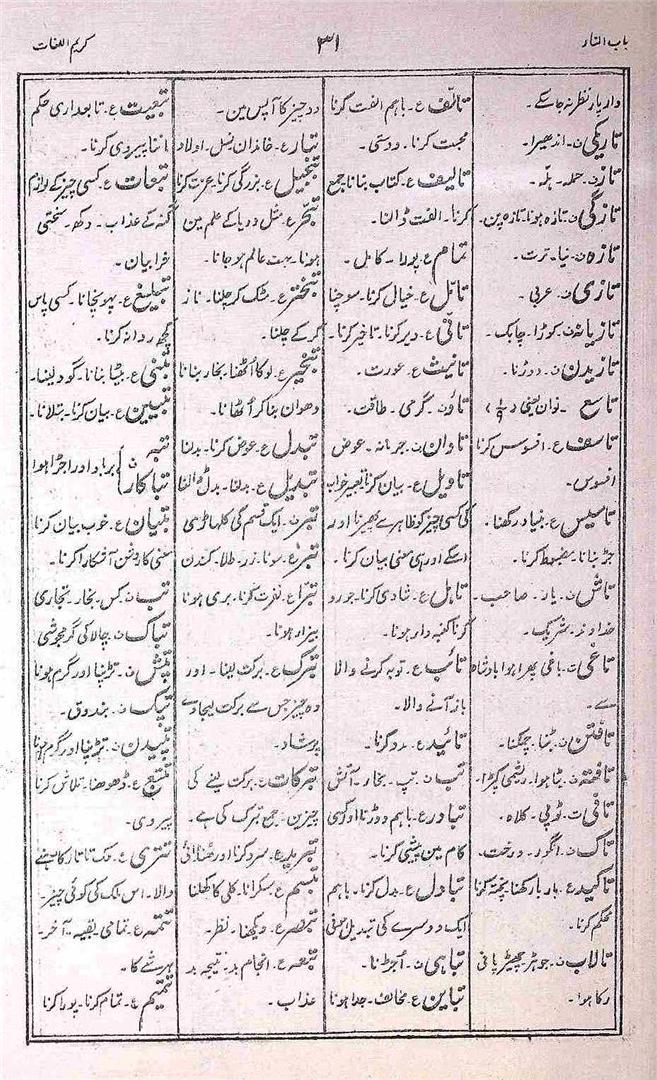 باب التاء
۳۱
کریم اللغات
دار پار نظر نہ جا سکے۔
تاریکی ف۔ اندھیرا۔
تاز ن۔ حملہ۔ ہلّہ۔
تازگی ن۔ تازہ ہونا۔ تازہ پن۔
تازہ ن۔ نیا۔ ترت۔
تازی ن۔ عربی۔
تازیانہ ن۔ کوڑا۔ چابک۔
تازیدن ن۔ دوڑنا۔
تاسع ۔ نواں یعنی (۱/۹)
تاسف ع۔ افسوس کرنا
افسوس۔
تاسیس ع۔ بنیاد رکھنا۔
جڑ بنانا۔ مضبوط کرنا۔
تاش ن۔ یار۔ صاحب۔
خداوند۔ شریک۔
تاغی ت۔ باغی پھرا ہوا بادشاہ
سے۔
تافتن ن۔ بٹنا۔ چمکنا۔
تافتہ ن۔ بٹا ہوا۔ ریشمی کپڑا۔
تاقی ت۔ ٹوپی۔ کلاہ۔
تاک ن۔ انگور۔ درخت۔
تاکید ع۔ بار بار کہنا پختہ کرنا
محکم کرنا۔
تالاب ن۔ جوہڑ چھپڑ پانی
رکا ہوا۔
تالّف ع۔ باہم الفت کرنا
محبت کرنا۔ دوستی۔
تالیف ع۔ کتاب بنانا جمع
کرنا۔ الفت ڈالنا۔
تمام ع۔ پورا۔ کامل۔
تامّل ع۔ خیال کرنا۔ سوچنا
تانّی ع۔ دیر کرنا۔ تاخیر کرنا۔
تانیث ع۔ عورت۔
تاؤ ن۔ گرمی۔ طاقت۔
تاوان ن۔ جرمانہ۔ عوض
تاویل ع۔ بیان کرنا تعبیر خواب
کی کسی چیز کو ظاہر سے پھیرنا اور
اسکے اور ہی معنی بیان کرنا۔
تاہل ع۔ شادی کرنا۔ جورو
کرنا کنبہ دار ہونا۔
تائب ع۔ توبہ کرنے والا
باز آنے والا۔
تائید ع۔ مدد کرنا۔
تب ن۔ تپ۔ بخار۔ آتش
تبادر ع۔ باہم دوڑنا اور کسی
کام میں پیشی کرنا۔
تبادل ع۔ بدل کرنا۔ باہم
ایک دوسرے کی تبدیل
تباہی ن۔ اُجڑنا۔
تباین ع۔ مخالف۔ جدا ہونا
دو چیز کا آپس مین۔
تبار ع۔ خاندان نسل۔ اولاد
تبجیل ع۔ بزرگی کرنا۔ عزت کرنا
تبحر ع۔ مثل دریا کے علم مین
ہونا۔ بہت عالم ہو جانا۔
تبختر ع۔ مٹک کر چلنا۔ ناز
کر کے چلنا۔
تبخیر ع۔ لوکا اُٹھنا۔ بخار بنانا
دھواں بنا کر اُٹھانا۔
تبدل ع۔ عوض کرنا۔ بدلنا
تبدیل ع۔ بدلنا۔ بدل ڈالنا
تبر ن۔ ایک قسم کی کلہاڑی
تبر ع۔ سونا۔ زر۔ طلا۔ کندن
تبرّا ع۔ نفرت کرنا۔ بری ہونا
بیزار ہونا۔
تبرک ع۔ برکت لینا۔ اور
وہ چیز جس سے برکت لیجاوے
پرشاد۔
تبرکات ع۔ برکت لینے کی
چیزین۔ جمع تبرک کی ہے۔
تبرید ع۔ سرد کرنا اور ٹھنڈائی
تبسم ع۔ مسکرانا۔ کلی کا کھلنا
تبصر ع۔ دیکھنا۔ نظر۔
تبعہ ع۔ انجام بد۔ نتیجہ بد
عذاب۔
تبعیت ع۔ تابعداری حکم
ماننا پیروی کرنا۔
تبعات ع۔ کسی چیز کے لوازم
گنہ کے عذاب۔ دکھ۔ سختی
خرابیاں۔
تبلیغ ع۔ پہونچانا۔ کسی پاس
کچھ روانہ کرنا۔
تبنی ع۔ بیٹا بنانا۔ گود لینا۔
تبیین ع۔ بیان کرنا۔ بتلانا۔
تبہ
تباکار ن برباد اور اجڑا ہوا
تبیان ع۔ خوب بیان کرنا
معنی کا روشن آشکارا کرنا۔
تپ ن۔ کس بخار۔ بخاری
تپاک ن۔ چالاکی گرمجوشی
تپش ن۔ تڑپنا اور گرم ہونا
تپک ن۔ بندوق۔
تپیدن ن۔ تڑپنا اور گرم ہونا
تتبع ع۔ ڈھونڈھنا۔ تلاش کرنا
پیروی۔
تتری ع۔ ملک تاتار کا رہنے
والا۔ اس ملک کی کوئی چیز۔
تتمہ ع۔ تمامی بقیہ۔ آخر۔
ہر شے کا۔
تتمیم ع۔ تمام کرنا۔ پورا کرنا